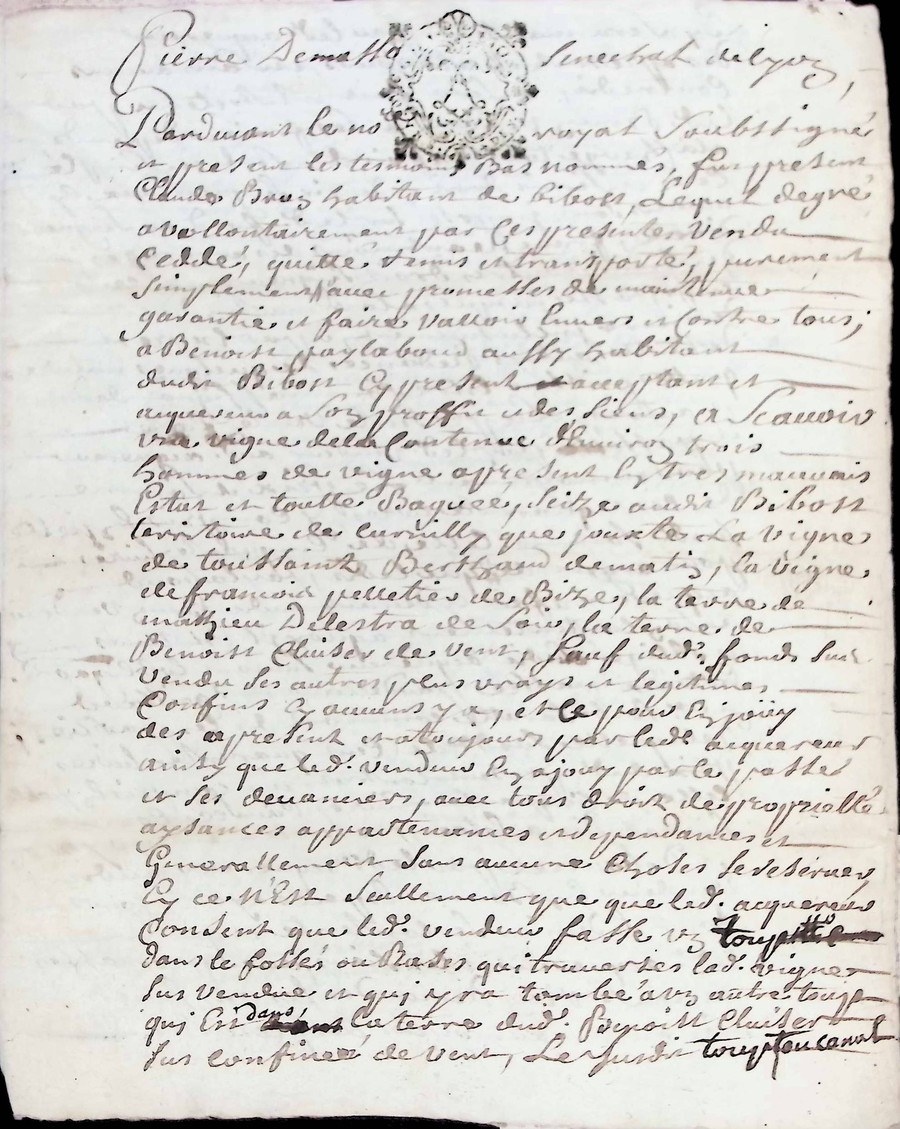 Pierre Demassa Senechal de Lyon
Pardevant le no royal Soubssigné
et present les tesmoins Bas nommés, fus present
Claude Brun habitant de bibost, Lequel de gré
a vollontairement par Ces presentes Vendu
Ceddé, quitté remis et transporté, purement
simplement avec promesses de maintenue
garantie et faire valloir Envers et Contre tous,
a Benoist paylaboud aussy habitant
dudit Bibost Cy present acceptant et
acquereur a Son proffit et des siens, a Scauoir
vne vigne de la Contenue d'Enuiron trois
hommes de vigne a present En tres mauuais
Estat et toutte, seize audit Bibost
territoire de que jouxte La vigne
de toussaint Berthaud de matin, la vigne
de francois pelletier de Bize, la terre de
mathieu Delestra de Soir, la terre de
Benoist Cluiser de vent, Sauf dud. fonds sus
vendu ses autres plus vrays et legitimes
Confins sy aucuns y a, et ce pour En jouir
des a present et a toujours par led. acquereur
ainsy que led. vendeur En a jouy par le passé
et ses deuanciers, auec tous droit de proprietté
aysances appartenances et dependances et
Generallement sans aucune Choses se reseruer,
Cy ce N'Est Seullement que que led. acquereur
Consent que led. vendeur fasse vn
dans le fossés ou Rases qui trauerses lad. vigne
sus vendue et qui yra tombé a vn autre toup
qui Est dans la terre dud. Benoist Cluiser
sus confinée de vent, Le Susdit toup ou canal